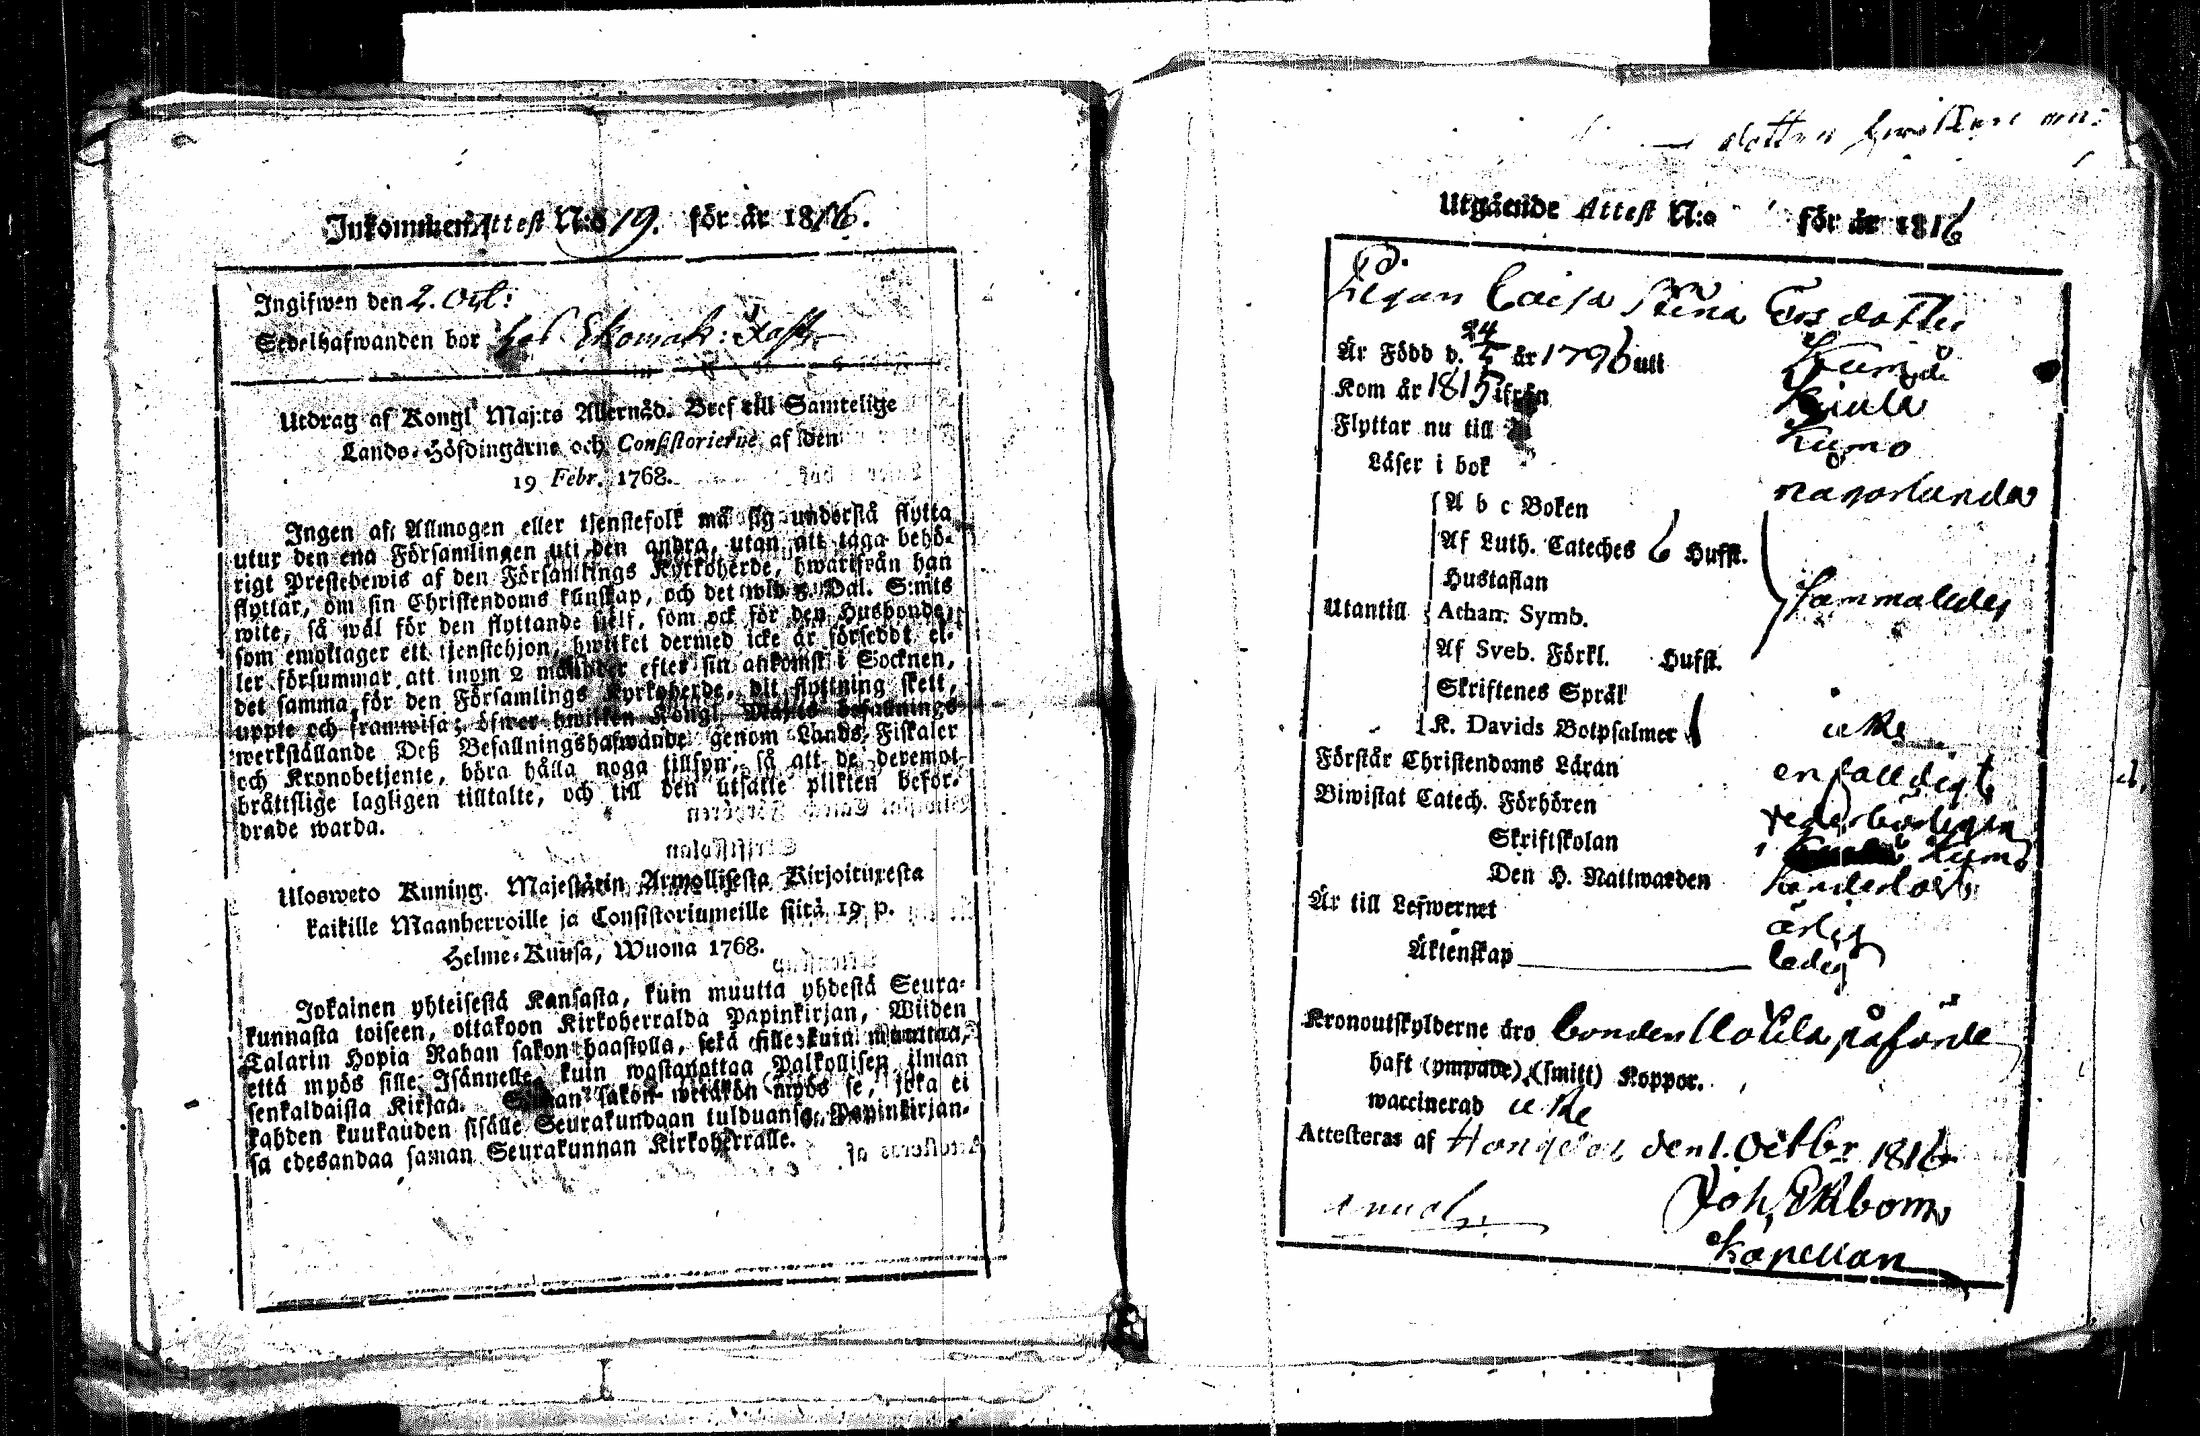 Inkommen Attest N:o 19. för år 1816.
Ingifwen den 2. Oct:
Sedelhafwanden bor hos Ekomak:
Utdrag af Kongl Maj:ts Allernåd. Bref till Samtelige
Lands-Höfdingarne och Consistorierne, af den
19 Febr. 1768.
Ingen af Allmogen eller tjenstefolk må sig understå flytta
utur den ena Församlingen uti den andra, utan att taga behö-
rigt Prestebewis af den Församlings Kyrkoherde, hwarifrån han
flyttar, om sin Christendoms kunskap, och det wid 5 Dal. S:mts
wite, så wäl för den flyttande sjelf, som ock för den Husbonde,
som emottager ett tjenstehjon, hwilket dermed icke är försedt el-
ler försummar att inom 2 månader efter sin ankomst i Socknen,
det samma för den Församlings Kyrkoherde, dit flyttning skett,
uppte och framwisa; öfwer hwilken Kongl. Maj:ts befallnings
werkställande Deß Befallningshafwande genom Lands-Fiskaler
och Kronobetjente, böra hålla noga tillsyn, så att de deremot
brättslige lagligen tilltalte, och till den utsatte plikten befor-
drade warda.
Ulosweto Kuning. Majestätin Armollisesta Kirjoituxesta
kaikille Maanherroille ja Consistoriumeille siitä 19 p.
Helme-Kuusa, Wuona 1768.
Jokainen yhteisestä Kansasta, kuin muutta yhdestä Seura-
kunnasta toiseen, ottakoon Kirkoherralda Papinkirjan, Wiiden
Talarin Hopia Rahan sakon haastolla, sekä sille kuin muuttaa,
että myös sille Isännelle, kuin wastanottaa Palkollisen ilman
senkaldaista Kirjaa. Saman sakon wetäkön myös se, joka ei
kahden kuukauden sisälle Seurakundaan tulduansa, Papinkirjan-
sa edesandaa saman Seurakunnan Kirkoherralle.
Utgående Attest N:o för år 1816
Pigan Caisa Stina Ersdotter
Är Född d. 24/5 år 1796 uti Kumo
Kom år 1815 ifrån Kiula
Flyttar nu till Kumo
Läser i bok någorlunda
A b c Boken
Af Luth. Cateches 6 Hufst.
Hustaflan
Utantill Athan. Symb. sammaledes
Af Sveb. Förkl. Hufst.
Skriftenes Språk
K. Davids Botpsalmer icke
Förstår Christendoms Läran enfalldigt
Biwistat Catech. Förhören vederbörligen
Skriftskolan i Kumo
Den H. Nattwarden
Är till Lefwernet ärlig
Äktenskap ledig
Kronoutskylderne äro bonden påförde
haft (ympade) (smitt) Koppor.
waccinerad icke
Attesteras af den 1. Octbr 1816
Joh. Ekbom
Kapellan